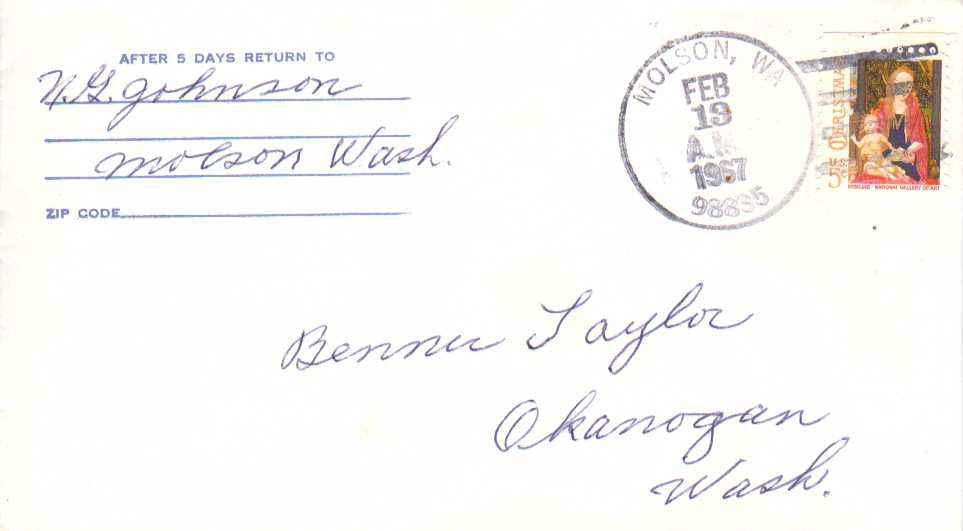 AFTER 5 DAYS RETURN TO
N.G. Johnson
Molson Wash.
ZIP CODE
MOLSON, WA
FEB
13
A.M.
1967
98835
5¢ CHRISTMAS
NATIONAL GALLERY OF ART
Taylor
Okanogan
Wash.